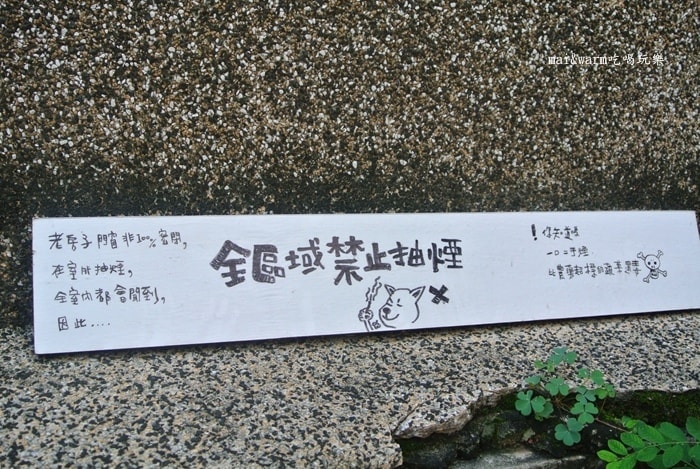 mar&warm吃喝玩樂
老房子門窗非100%密閉,
在室外抽煙,
全室內都會聞到,
因此....
全區域禁止抽煙
! 你知道嗎
一口二手煙